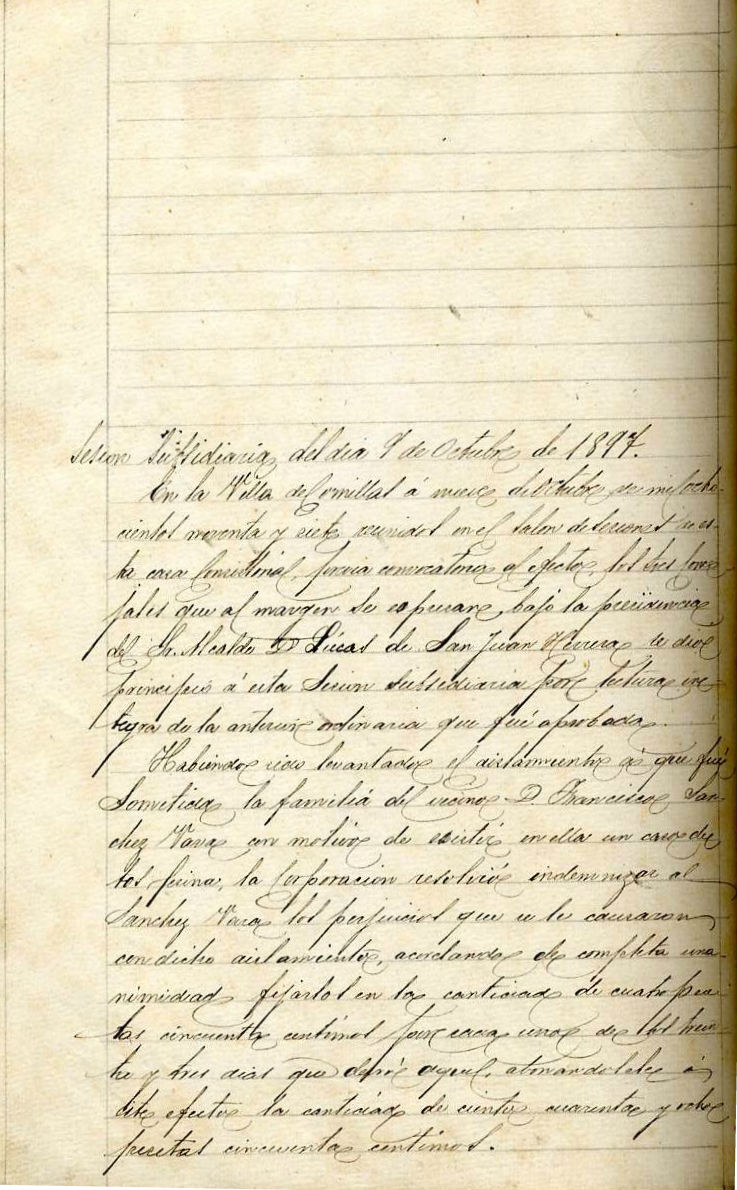 Sesion Subsidiaria del dia 9 de Octubre de 1897.
En la Villa de Comillas á nueve de Octubre de mil ocho-
cientos noventa y siete reunidos en el Salon de sesiones de es-
ta casa Consistorial, previa convocatoria al efecto, los tres Conce-
jales que al margen se espresan, bajo la presidencia
del Sr. Alcalde D. Lúcas de San Juan Herrera se dió
principio á esta Sesion Subsidiaria por lectura in-
tegra de la anterior ordinaria que fué aprobada.
Habiendo sido levantado el aislamiento á que fué
Sometida la familiá del vecino D. Francisco San-
chez Vara con motivo de existir en ella un caso de
tos ferina, la Corporacion resolvió indemnizar al
Sanchez Vara los perjuicios que se le causaron
con dicho aislamiento, acordando de completa una-
nimidad fijarlos en la cantidad de cuatro pese-
tas cincuenta centimos por cada uno de los trein-
ta y tres dias que duró aquel, abonandosele á
este efecto la cantidad de ciento cuarenta y ocho
pesetas cincuenta centimos.